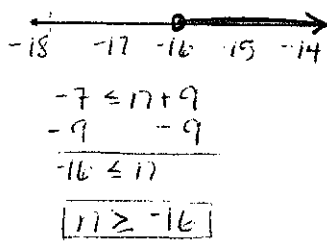 -18 -17 -16 -15 -14
-7 ≤ n + 9
-9 -9
-16 ≤ n
n ≥ -16